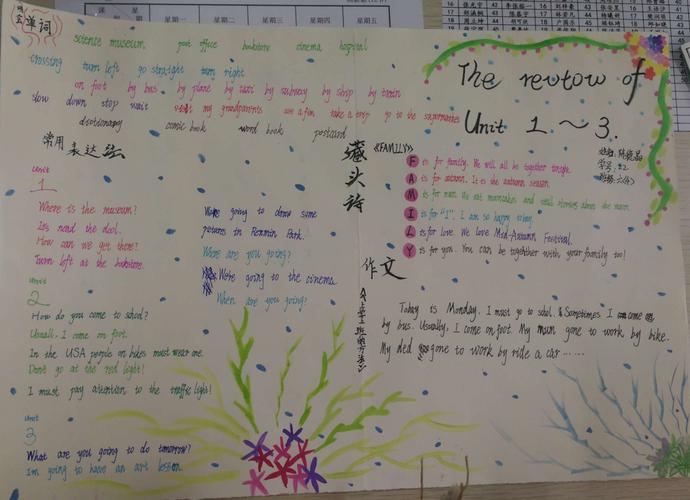 单词
science museum post office bookstore cinema hospital
crossing turn left go straight turn right
on foot by bus by plane by taxi by subway by ship by train
slow down stop wait visit my grandparents see a film take a trip go to the supermarket
dictionary comic book word book postcard
常用表达法
Unit
1
Where is the museum?
It's near the dool.
How can we get there?
Turn left at the bookstore.
Unit
2
How do you come to school?
Usuall. I come on foot.
In the USA people on bikes must wear one.
Don't go at the red light!
I must pay attention to the traffic light!
Unit
3
What are you going to do tomorrow?
I'm going to have an art lesson.
We're going to draw some
pictures in Renmin Park.
Where are you going?
We're going to the cinema.
When are you going?
The revtow of
Unit 1 ~ 3.
藏头诗
《FAMILY》
F is for family. We will all be together tonight.
A is for autumn. It is the autumn season.
M is for moon. We eat mooncakes and tell stories about the moon.
I is for "I". I am so happy today.
L is for love. We love Mid-Autumn Festival.
Y is for you. You can be together with your family too!
作文
Today is Monday. I must go to schol. Sometimes I come on
by bus. Usually, I come on foot. My mum gone to work by bike.
My dad gone to work by ride a car ......
星期一 星期二 星期三 星期四 星期五